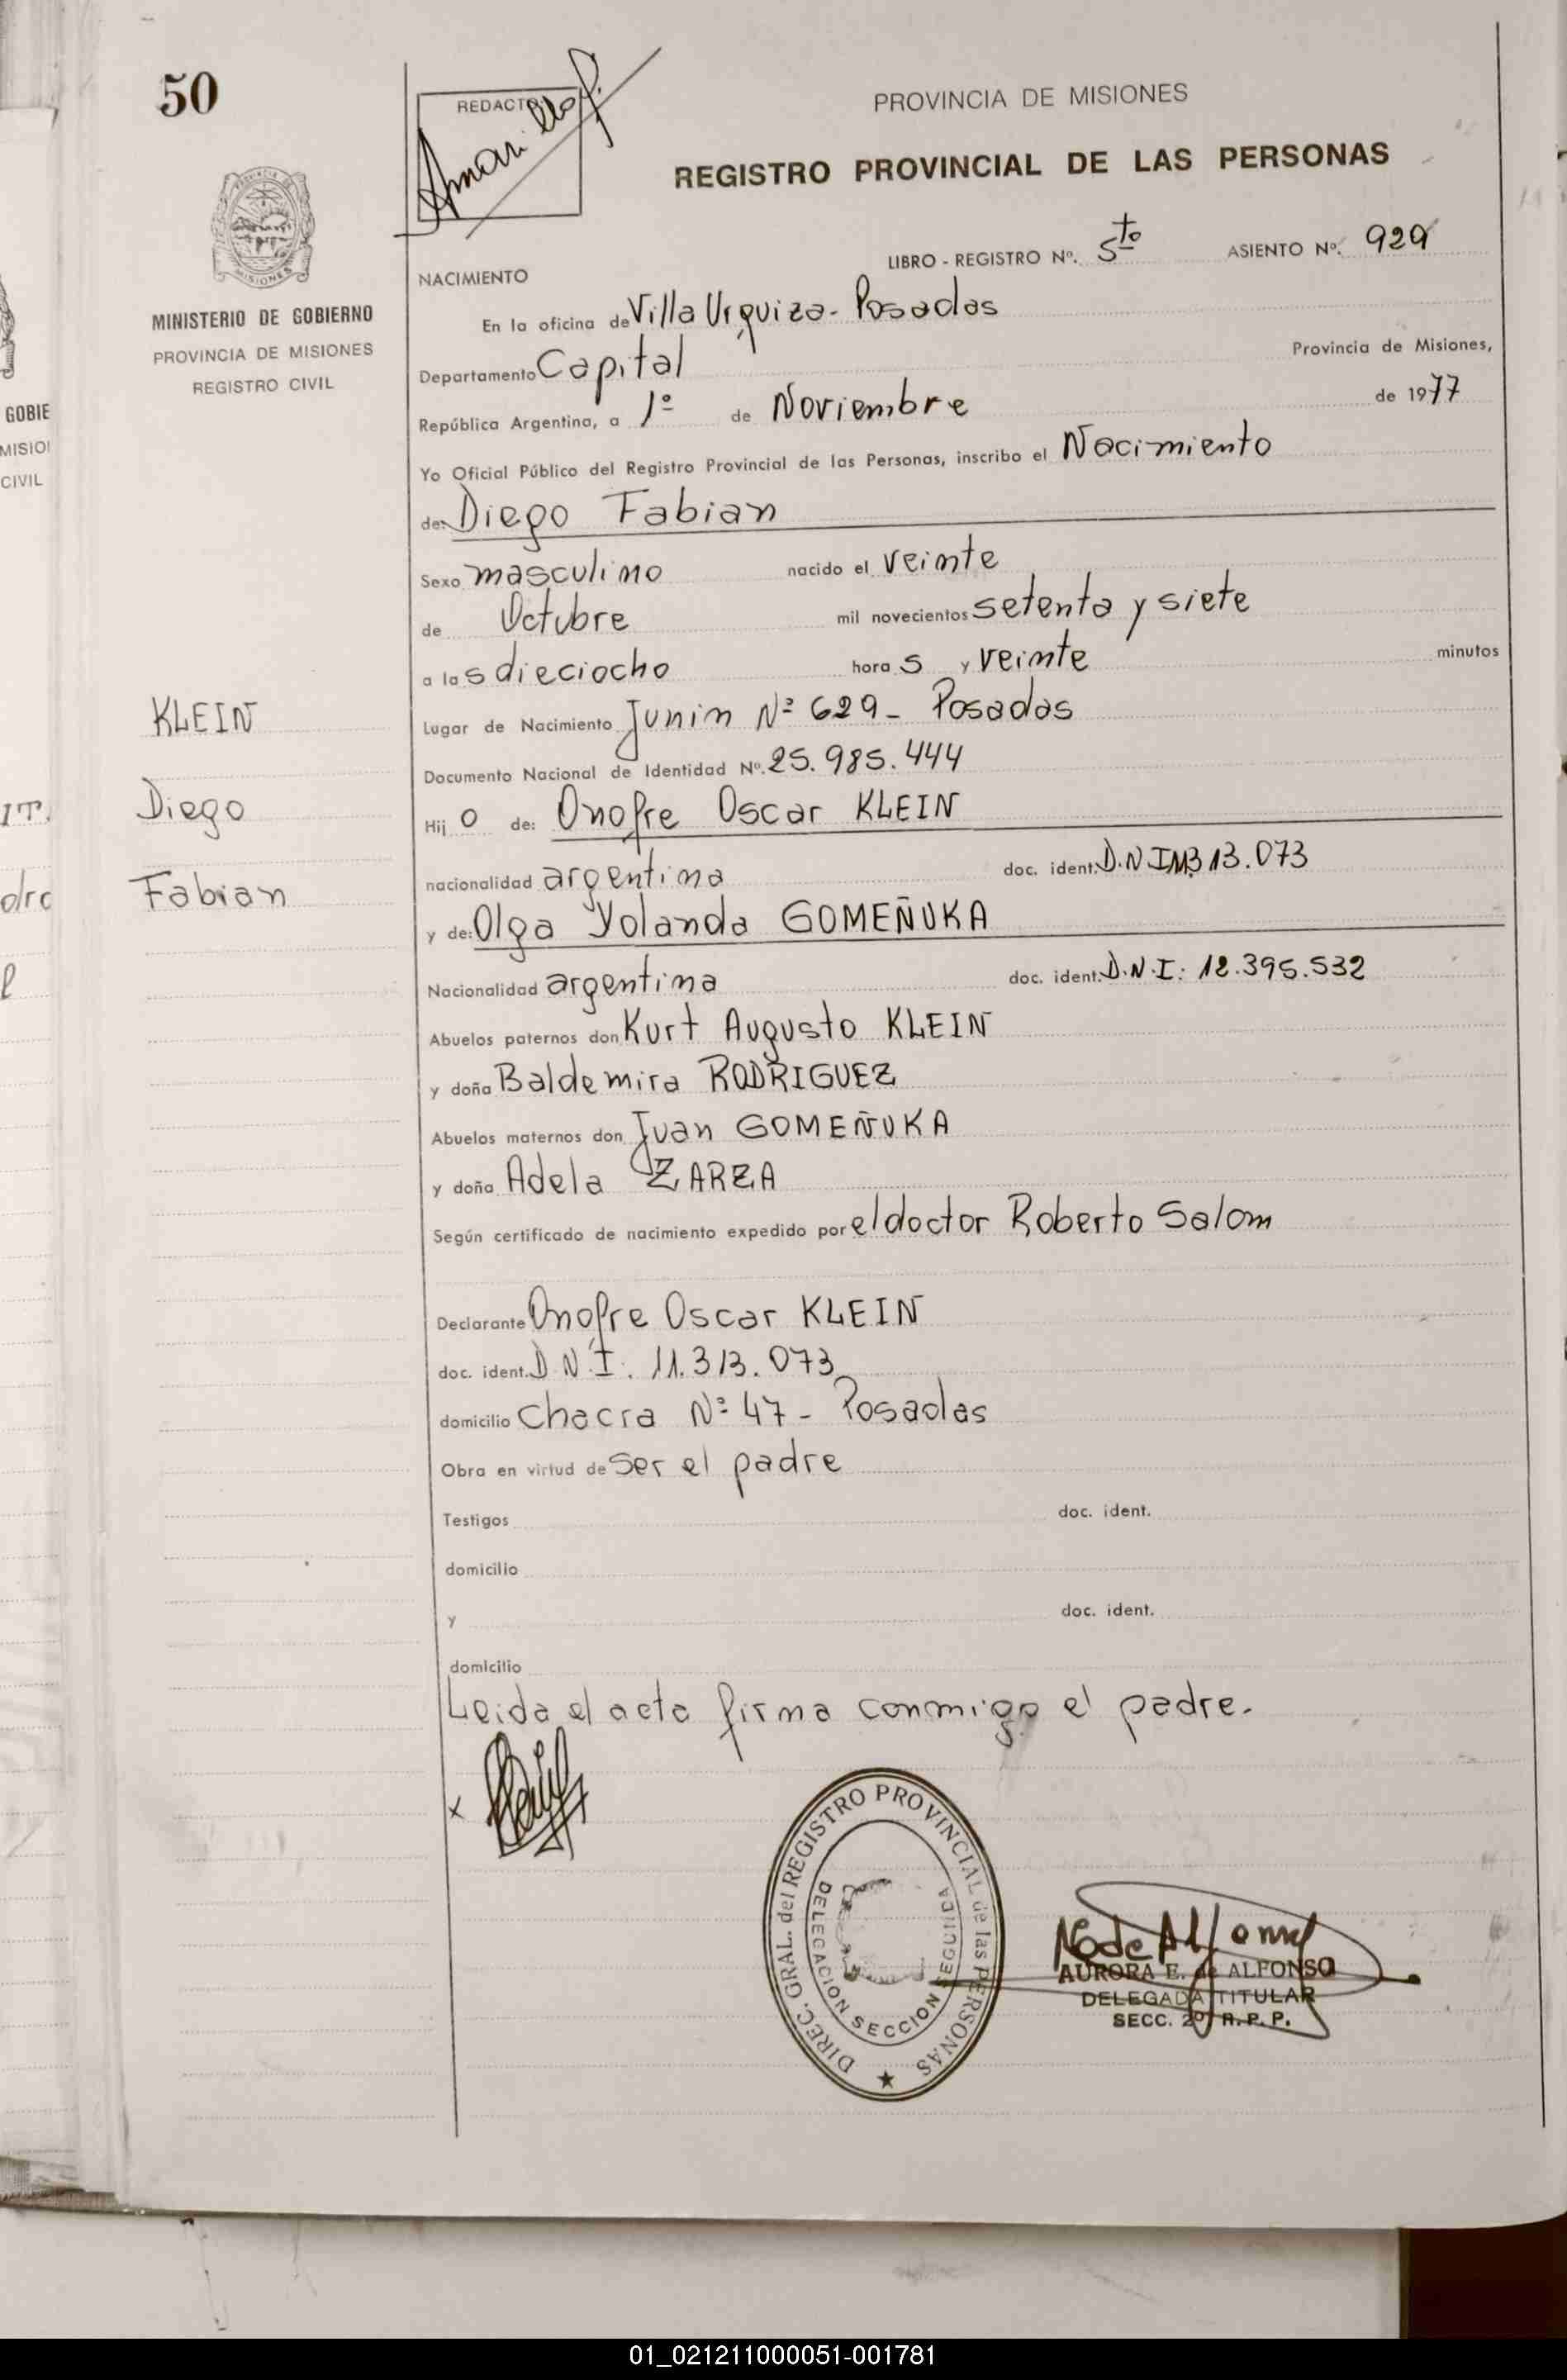 50
REDACTO:
PROVINCIA DE MISIONES
REGISTRO PROVINCIAL DE LAS PERSONAS
LIBRO - REGISTRO Nº. 5to ASIENTO Nº. 929
NACIMIENTO
En la oficina de Villa Urquiza - Posadas
MINISTERIO DE GOBIERNO
PROVINCIA DE MISIONES
REGISTRO CIVIL
Departamento Capital Provincia de Misiones,
República Argentina, a 1º de Noviembre de 1977
Yo Oficial Público del Registro Provincial de las Personas, inscribo el Nacimiento
de: Diego Fabian
Sexo masculino nacido el veinte
de Octubre mil novecientos setenta y siete
a las dieciocho horas y veinte minutos
KLEIN
Lugar de Nacimiento Junin Nº 629 - Posadas
Documento Nacional de Identidad Nº. 25.985.444
Diego
Hijo de: Onofre Oscar KLEIN
Fabian
nacionalidad argentina doc. ident. D.N.I 11.313.073
y de: Olga Yolanda GOMEÑUKA
Nacionalidad argentina doc. ident. D.N.I: 12.395.532
Abuelos paternos don Kurt Augusto KLEIN
y doña Baldemira RODRIGUEZ
Abuelos maternos don Juan GOMEÑUKA
y doña Adela ZARZA
Según certificado de nacimiento expedido por el doctor Roberto Salom
Declarante Onofre Oscar KLEIN
doc. ident. D.N.I. 11.313.073
domicilio Chacra Nº 47 - Posadas
Obra en virtud de ser el padre
Testigos doc. ident.
domicilio
y doc. ident.
domicilio
Leida el acta firma conmigo el padre.
x
DIREC. GRAL. del REGISTRO PROVINCIAL de las PERSONAS
DELEGACION SECCION SEGUNDA
AURORA E. de ALFONSO
DELEGADA TITULAR
SECC. 2º R. P. P.
GOBIE
MISIO
CIVIL
01_021211000051-001781